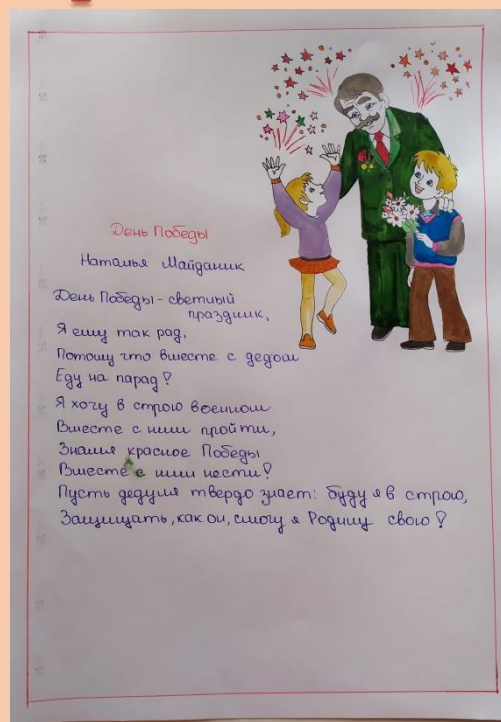 День Победы
Наталья Майданик
День Победы - светлый
праздник,
Я ему так рад,
Потому что вместе с дедом
Еду на парад!
Я хочу в строю военном
Вместе с ним пройти,
Знамя красное Победы
Вместе с ним нести!
Пусть дедуля твердо знает: буду я в строю,
Защищать, как он, смогу я Родину свою!